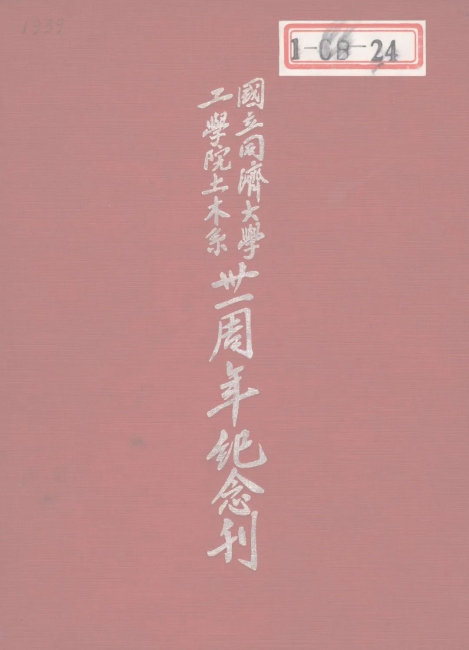 1939
1-CB-24
國立同濟大學
工學院土木系
卅一周年紀念刊